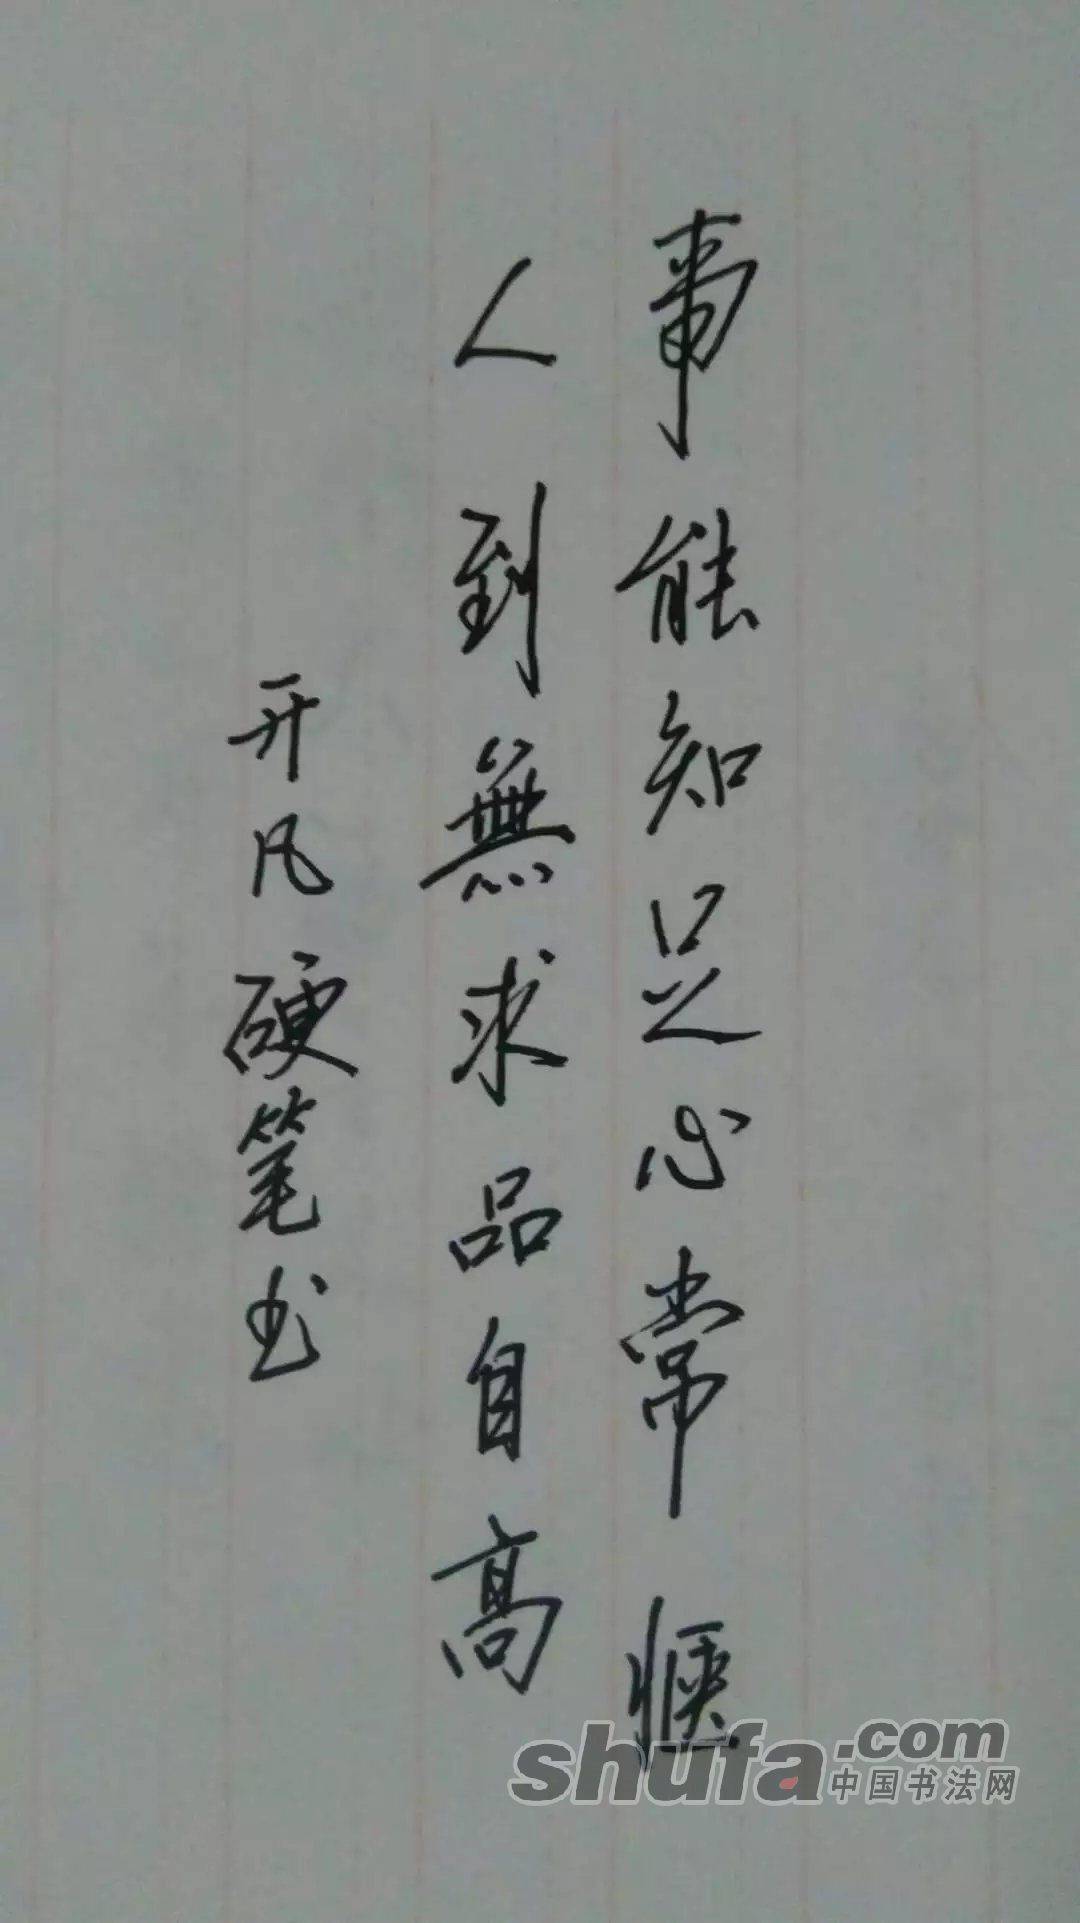 事能知足心常惬
人到無求品自高
开凡硬笔书
shufa.com
中国书法网